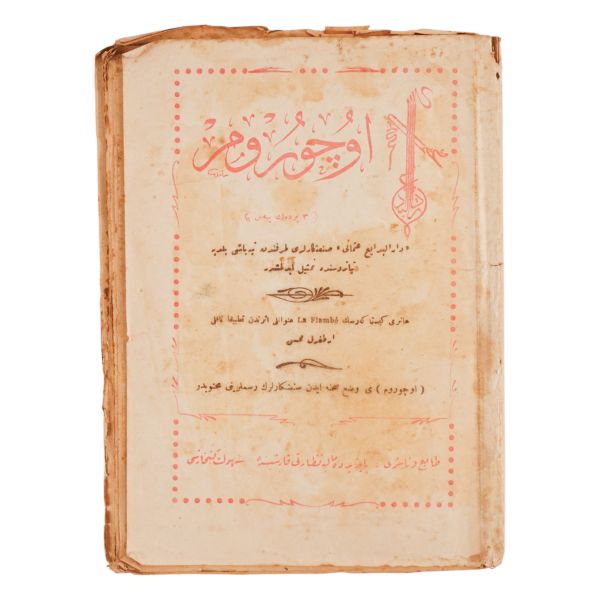 اوچوروم
( ٣ پرده‌لك پيه‌س )
« دار البدايع عثمانى » صنعتكارلرى طرفندن تپه باشى بلديه
تياتروسنده تمثيل ايدلمشدر
هانرى كيستا كه‌رسك La Flambé عنوانلى اثرندن تطبيقا ناقلى
ارطغرل محسن
( اوچوروم ) ى وضع صحنه ايدن صنعتكارلرك رسملرينى محتويدر
طابع و ناشرى : بايزيدده ماليه نظارتى قارشيسنده سهولت كتبخانه‌سى